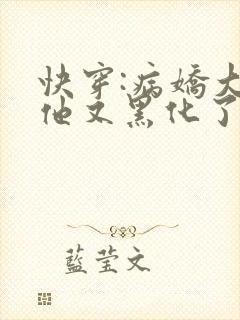 快穿:病嬌大
他又黑化了
藍莹文